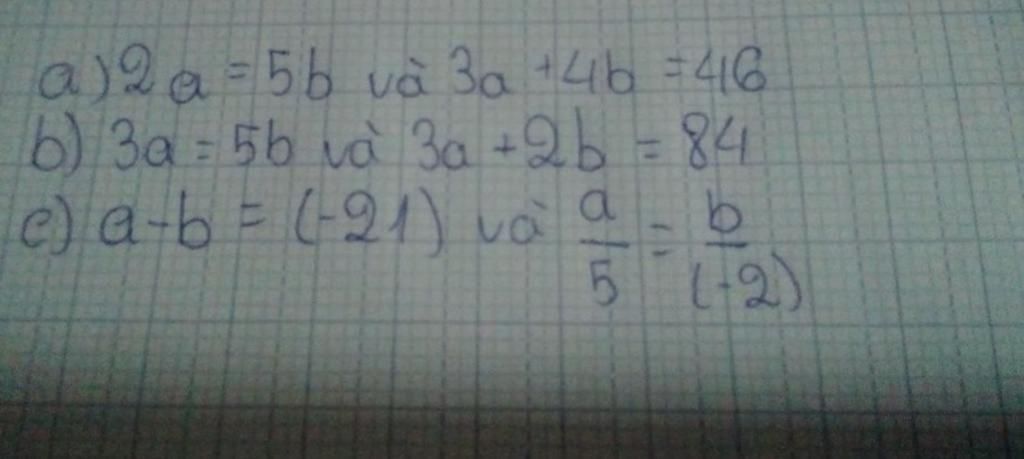 a) 2a = 5b và 3a + 4b = 46
b) 3a = 5b và 3a + 2b = 84
c) a - b = (-21) và a/5 = b/(-2)